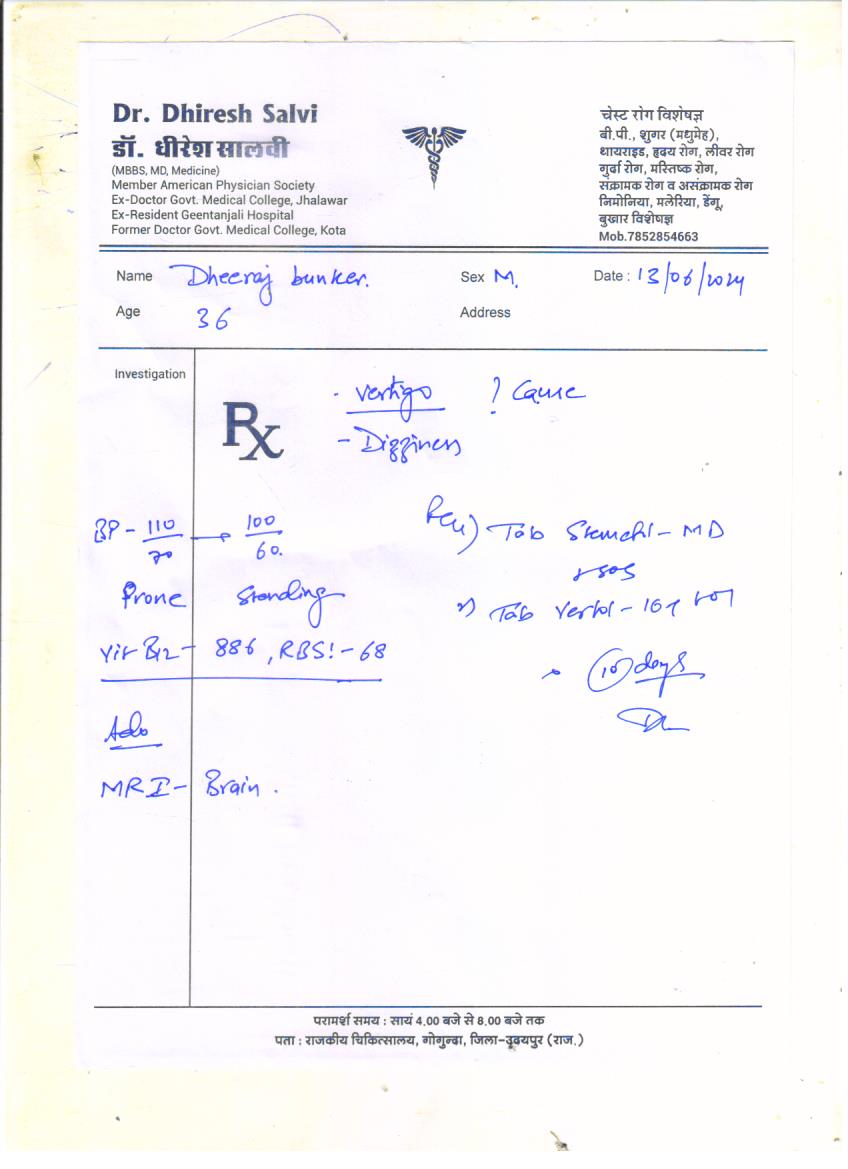 Dr. Dhiresh Salvi
डॉ. धीरेश सालवी
(MBBS, MD, Medicine)
Member American Physician Society
Ex-Doctor Govt. Medical College, Jhalawar
Ex-Resident Geentanjali Hospital
Former Doctor Govt. Medical College, Kota
चेस्ट रोग विशेषज्ञ
बी.पी., शुगर (मधुमेह),
थायराइड, हृदय रोग, लीवर रोग
गुर्दा रोग, मस्तिष्क रोग,
संक्रामक रोग व असंक्रामक रोग
निमोनिया, मलेरिया, डेंगू,
बुखार विशेषज्ञ
Mob.7852854663
Name Dheeraj bunker. Sex M. Date : 13/06/2024
Age 36 Address
Investigation
Rx
- Vertigo ? Cause
- Dizziness
BP - 110/70 → 100/60.
Prone Standing
Vit B12 - 886, RBS :- 68
Adv
MRI - Brain.
1) Tab Stemetil - MD
SOS
2) Tab
10 days
परामर्श समय : सायं 4.00 बजे से 8.00 बजे तक
पता : राजकीय चिकित्सालय, गोगुन्दा, जिला-उदयपुर (राज.)